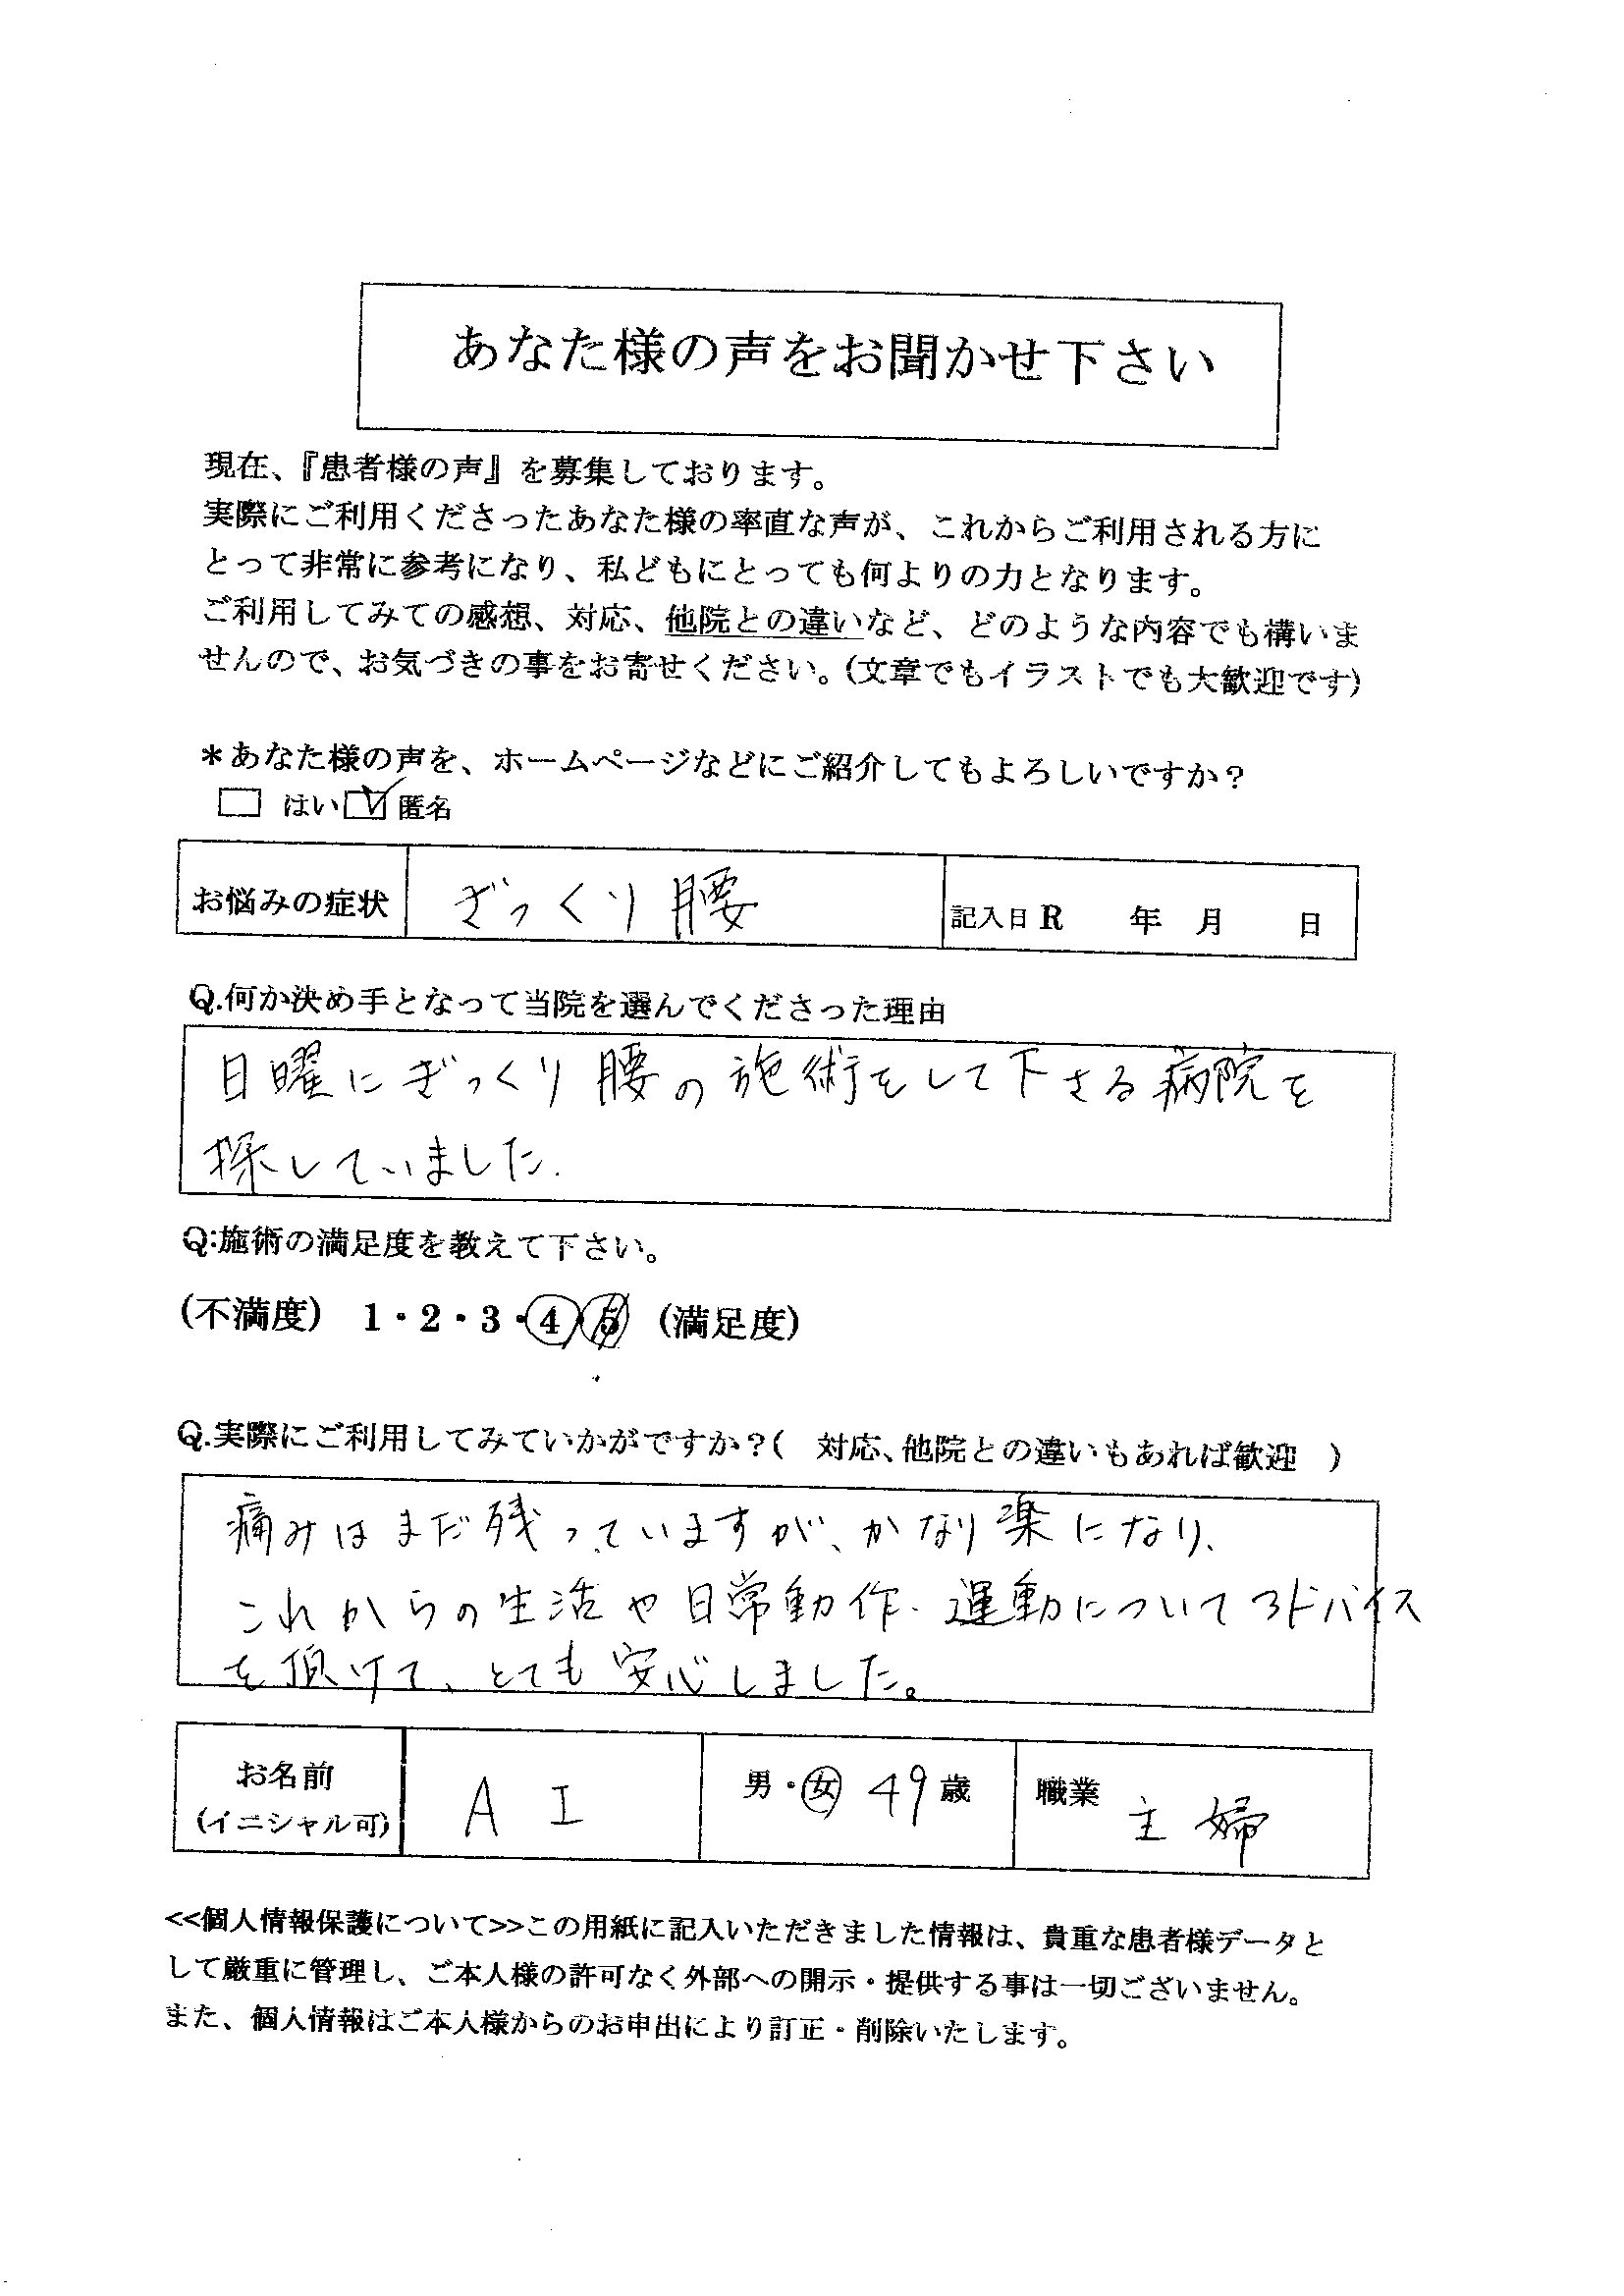 あなた様の声をお聞かせ下さい
現在、『患者様の声』を募集しております。
実際にご利用くださったあなた様の率直な声が、これからご利用される方に
とって非常に参考になり、私どもにとっても何よりの力となります。
ご利用してみての感想、対応、他院との違いなど、どのような内容でも構いま
せんので、お気づきの事をお寄せください。(文章でもイラストでも大歓迎です)
＊あなた様の声を、ホームページなどにご紹介してもよろしいですか？
□ はい ☑ 匿名
お悩みの症状 ぎっくり腰 記入日 R 年 月 日
Q.何か決め手となって当院を選んでくださった理由
日曜にぎっくり腰の施術をして下さる病院を
探していました.
Q:施術の満足度を教えて下さい。
(不満度) 1・2・3・4・5 (満足度)
Q.実際にご利用してみていかがですか？( 対応、他院との違いもあれば歓迎 )
痛みはまだ残っていますが、かなり楽になり、
これからの生活や日常動作・運動についてアドバイス
を頂けて、とても安心しました。
お名前 A I 男・女 49歳 職業 主婦
(イニシャル可)
<<個人情報保護について>>この用紙に記入いただきました情報は、貴重な患者様データと
して厳重に管理し、ご本人様の許可なく外部への開示・提供する事は一切ございません。
また、個人情報はご本人様からのお申出により訂正・削除いたします。